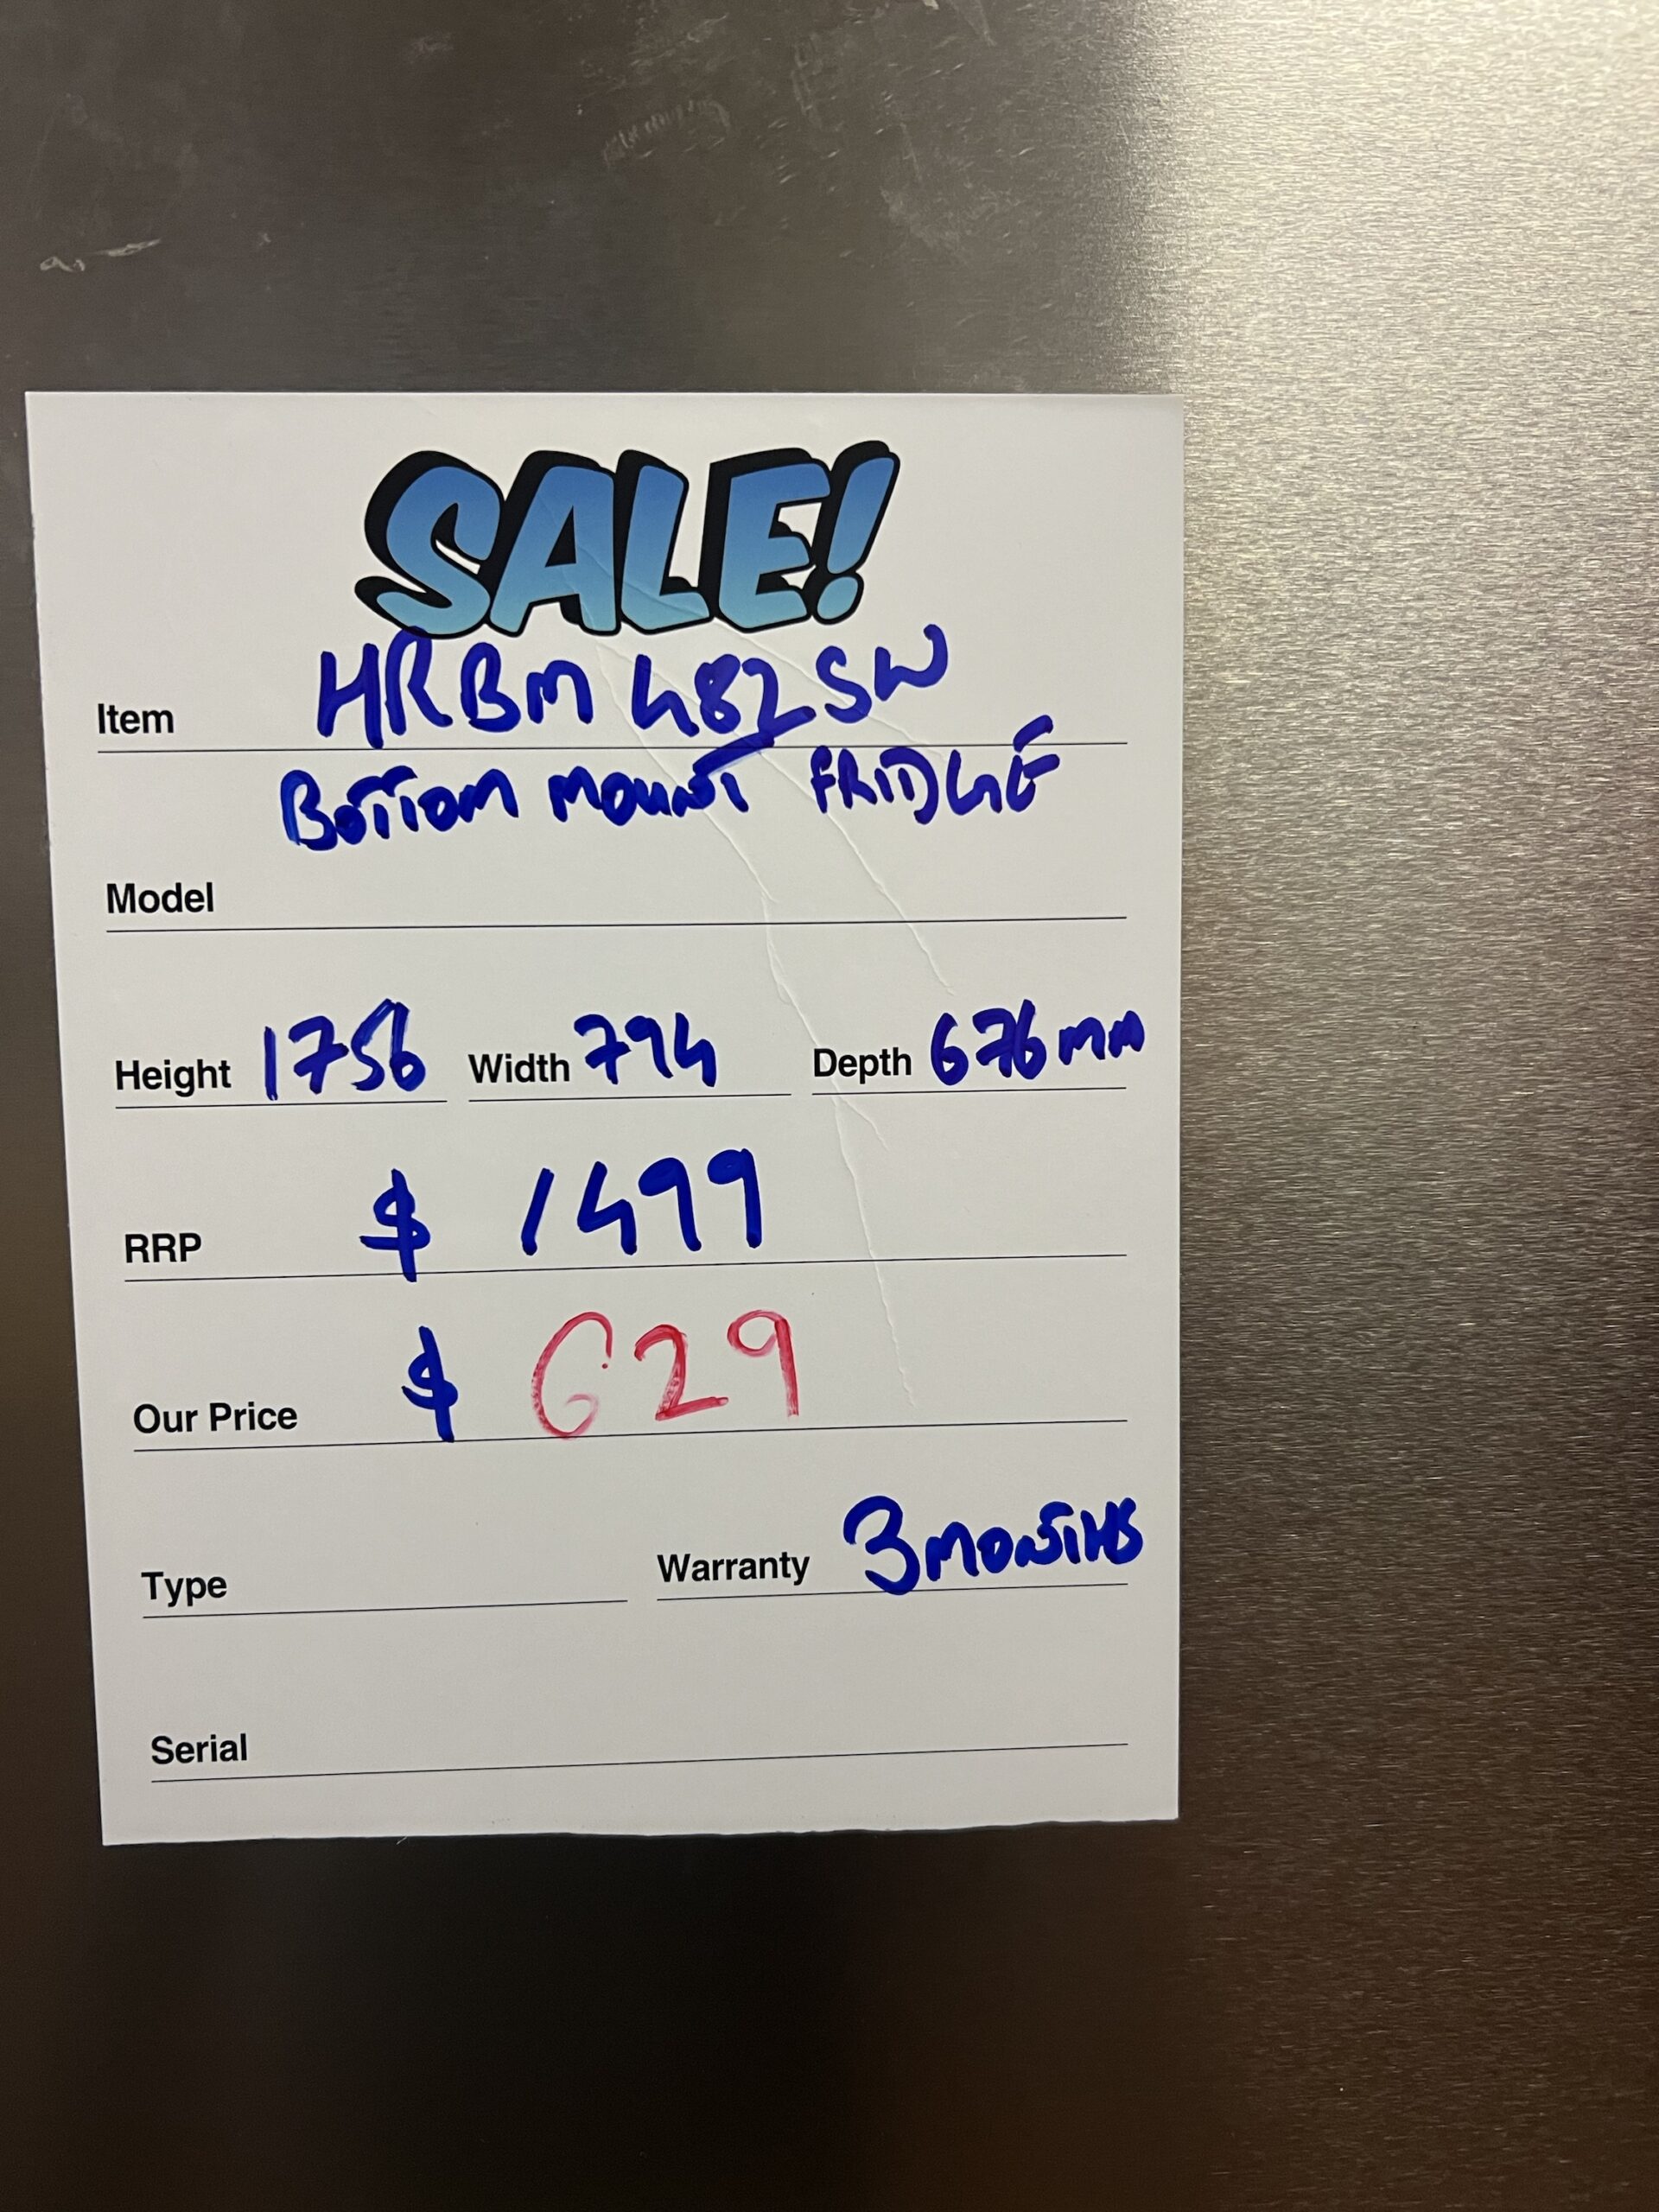 SALE!
Item HRBM482SW
BOTTOM MOUNT FRIDGE
Model
Height 1756 Width 794 Depth 676mm
RRP $ 1499
Our Price $ 629
Type Warranty 3 MONTHS
Serial